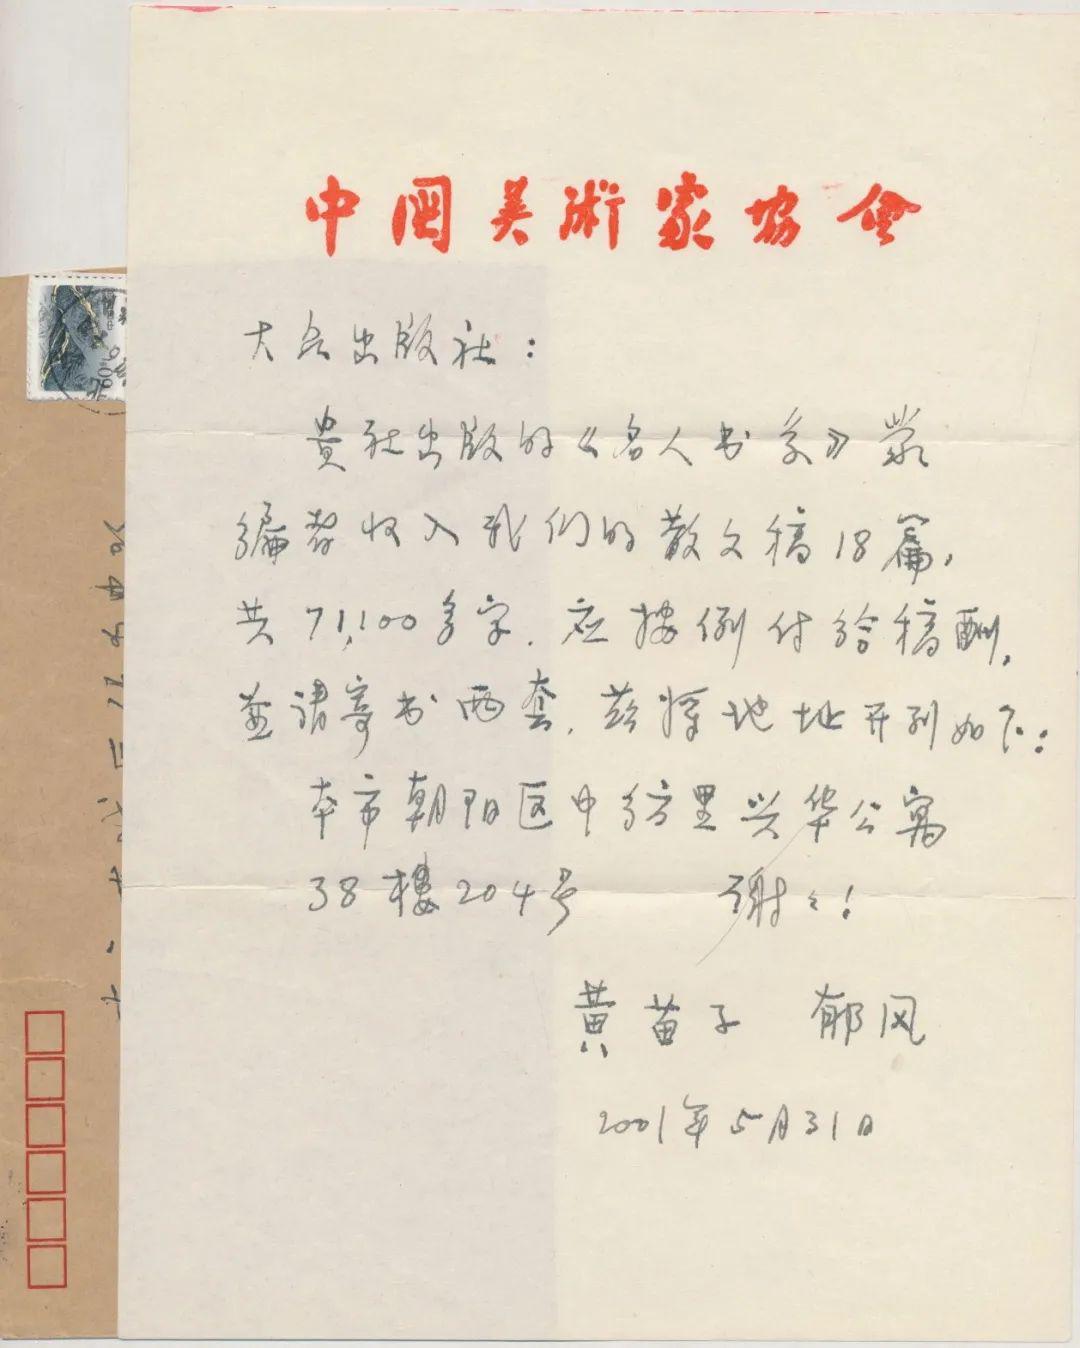 中國美術家協會
大众出版社：
贵社出版的《名人书系》蒙
编者收入我们的散文稿18篇，
共71,100多字．应按例付给稿酬，
並请寄书两套．兹将地址开列如下：
本市朝阳区中纺里兴华公寓
38樓204号　谢々！
黄苗子　郁风
2001年5月31日